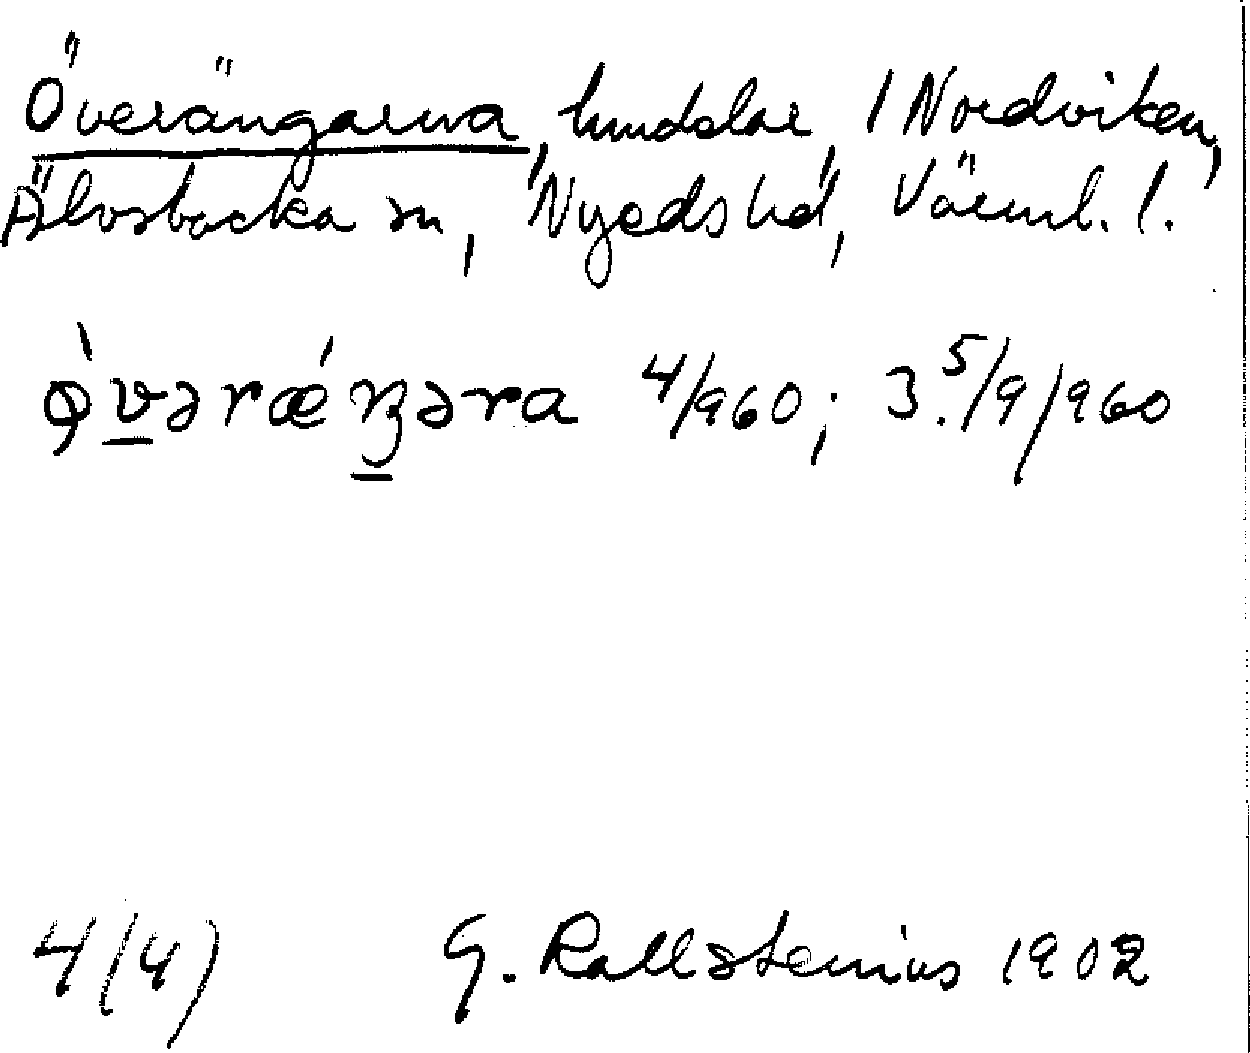 Överängarna, hmdslar, i Nordviken,
Älvsbacka sn, Nyeds hd, Värml. l.
ǫ̀vərǽŋəra 4/960; 3.5/9/960
4(4) G. Kallstenius 1902